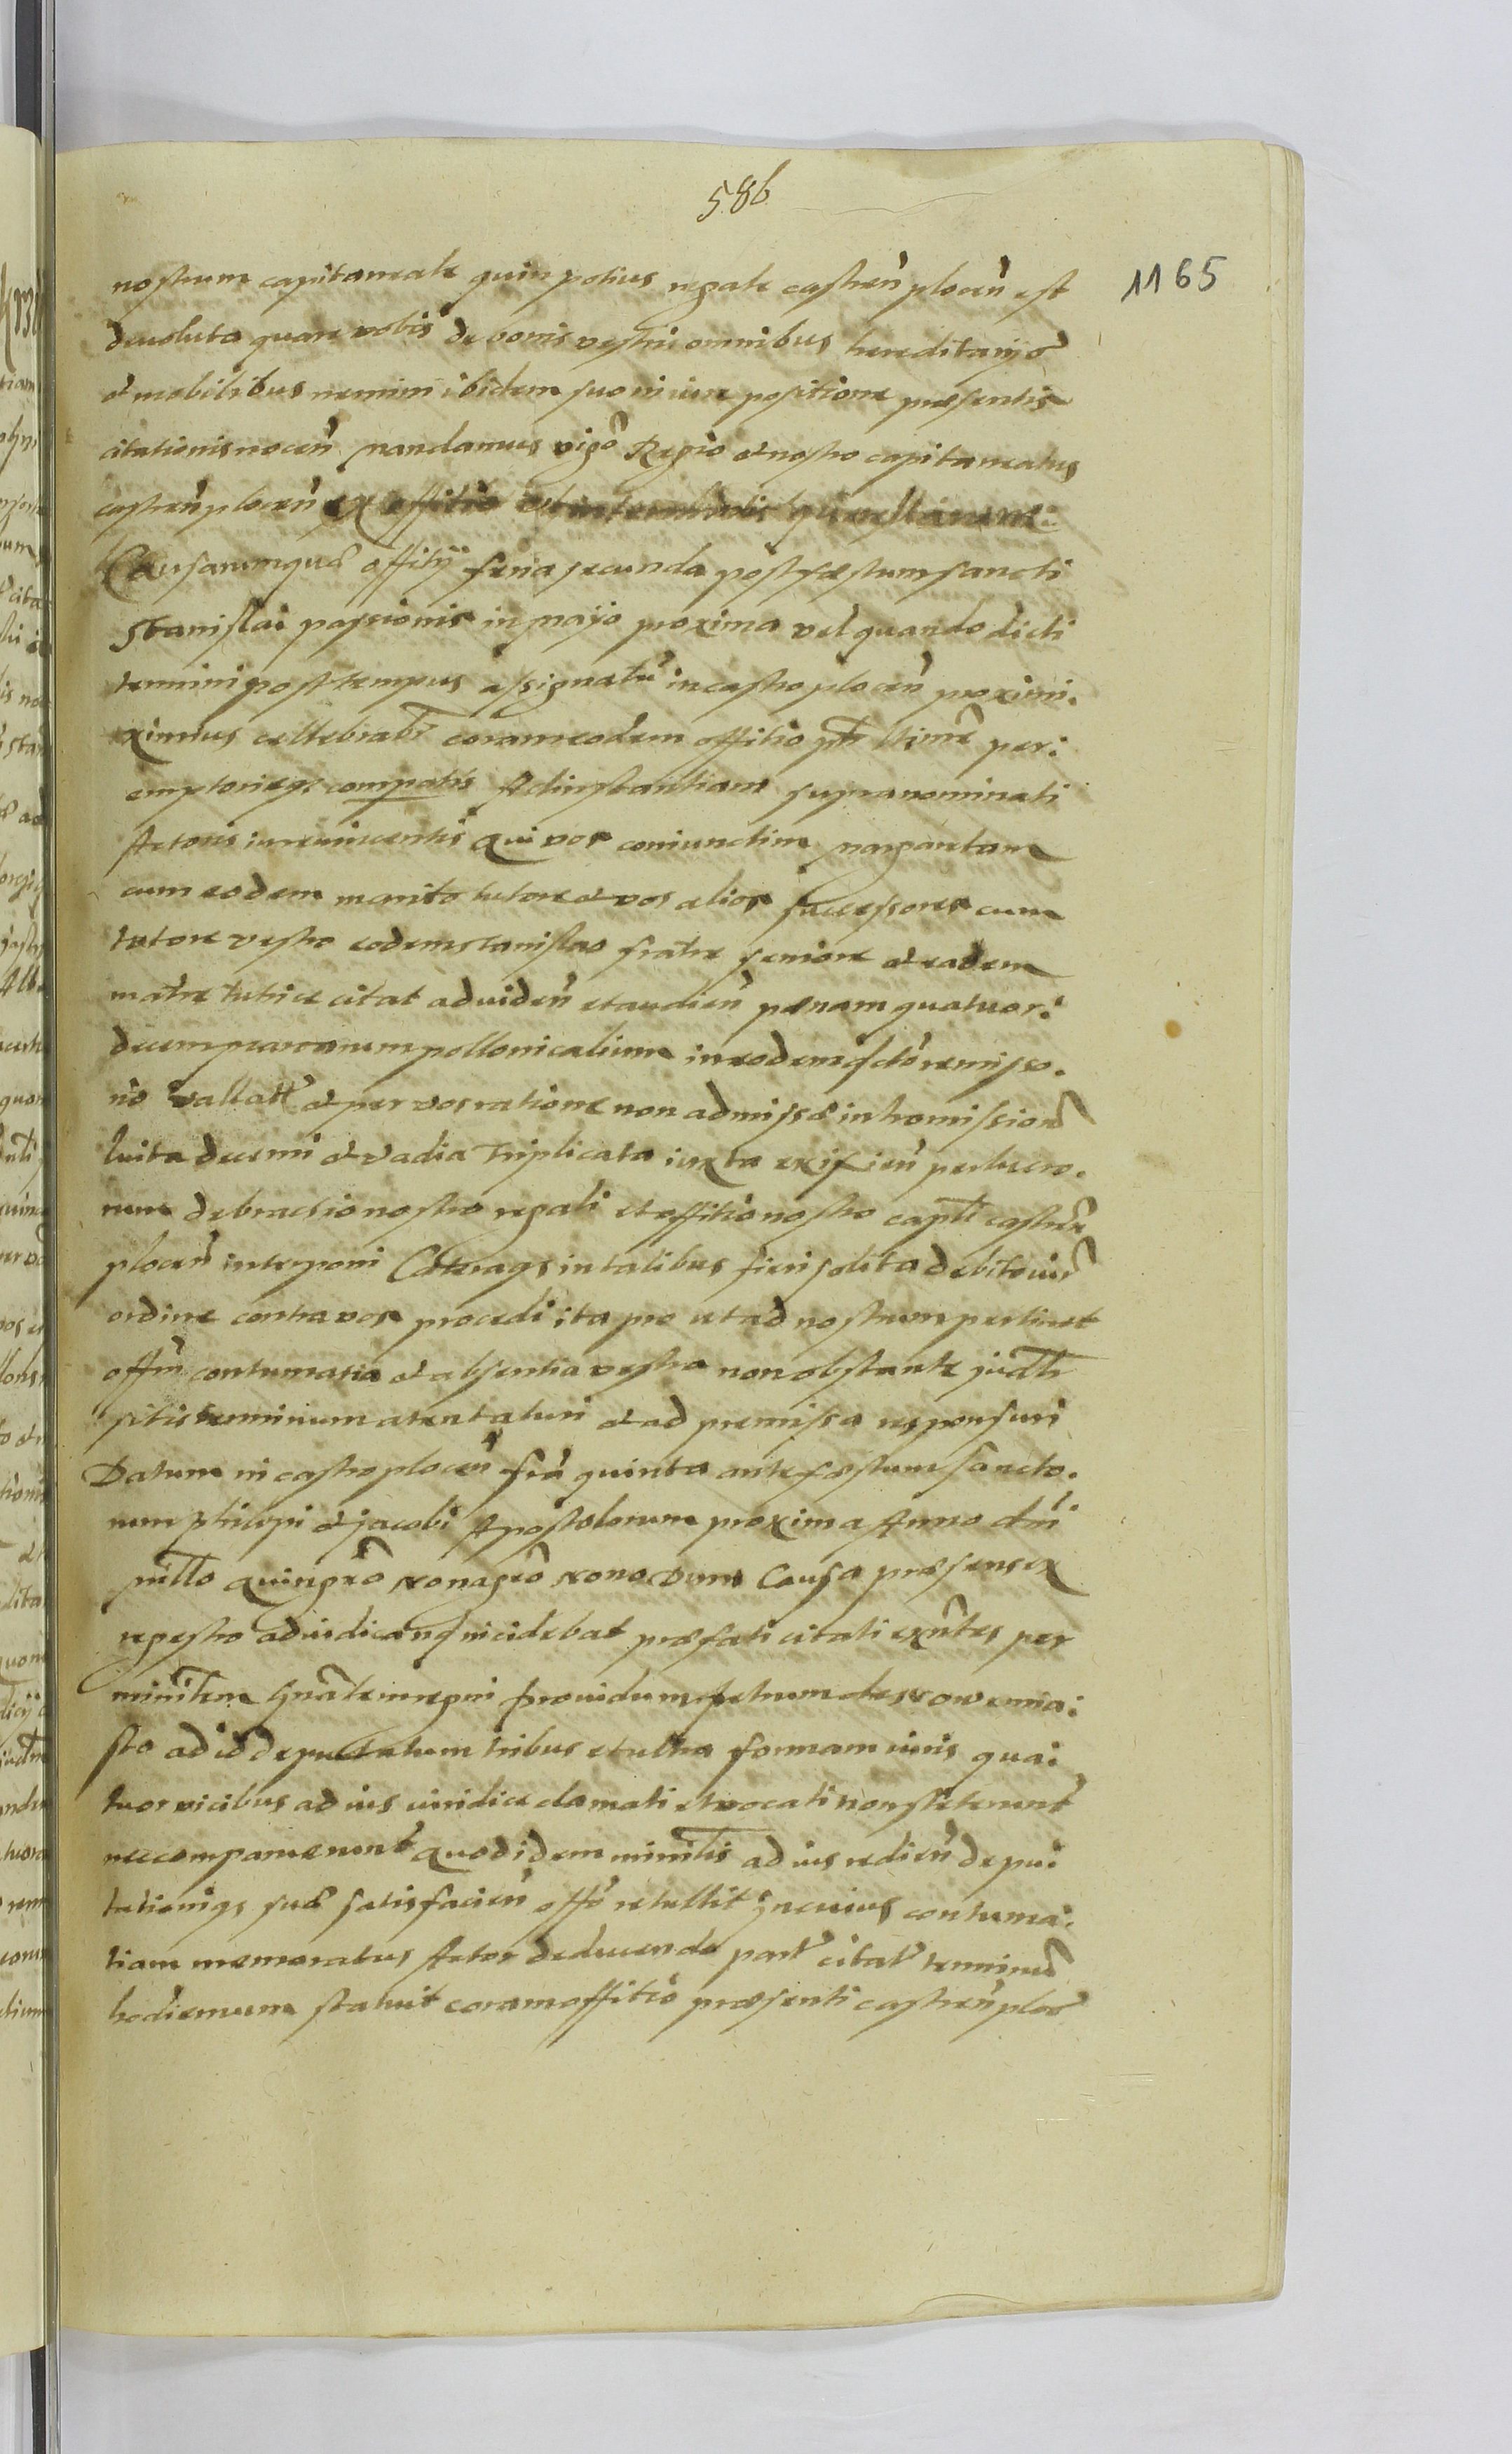 586
1165
nostrum capitaneale quin potius regale castren plocen est
deuoluta quare vobis de bonis vestris omnibus hereditarijs
et mobilibus nemini ibidem suo in iure positione præsentis
citationis nocen mandamus vigō Regio et nostro capitaneatus
castren plocen ex offitio et in terminis querellarum:
Causarumque offitij feria secunda post fæstum sancti
Stanislai passionis in mayo proxima vel quando dicti
termini post tempus assignatū in castro plocen proximi.
ximius cellebrabr coram eodem offitio ptr ltime per:
emptorieqs compatis Ad instantiam supranominati
Actoris iurevincentis Qui vos coniunctim margaretam
cum eodem marito tutore et vos alios successores cum
tutore vestro eodem stanislao fratre seniore et eadem
matre tutrice citat ad viden et audien pænam quatuor:
decem marcarum pollonicalium in eodem dto remisso.
rio vallatt et per vos ratione non admissæ intromission
luita decerni et vadia triplicata iuxta exigien per lucro.
rum de brachio nostro regali et offitio nostro captli castren
plocen interponi Cæteraqs in talibus fieri solita debito iur
ordine contra vos procedi ita pro ut ad nostrum pertinet
offm contumatia et absentia vestra non obstante judtr
sitis terminum attentaturi et ad premissa responsuri
Datum in castro plocen fra quinta ante fæstum sancto.
rum philipi et jacobi Apostolorum proxima Anno dni
millo quingmo nonagmo nono Dum Causa præsens ex
regestro ad iudicand incidebat præfati citati exntes per
minrlem gnalem regni prouidum petrum de nowemia:
sto ad id deputatum tribus et ultra formam iuris qua:
tuor vicibus ad ius iuridice clamati et vocati non steterunt
nec comparuerunt Quod idem minrlis ad ius redien depu:
tationiqs suæ satisfacien offo retullit In cuius contuma:
tiam memoratus Actor deducendo part citat terminum
hodiernum statuit coram offitio præsenti castren ploc